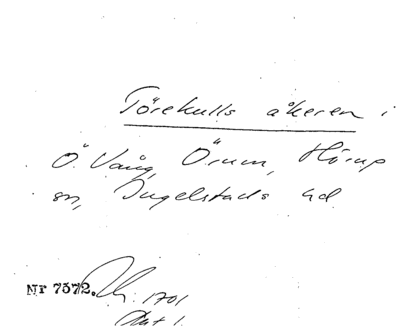 Törekulls åkeren i
Ö. Vång, Örum, Hörup
sn, Ingelstads hd.
Nr 7572.
1701